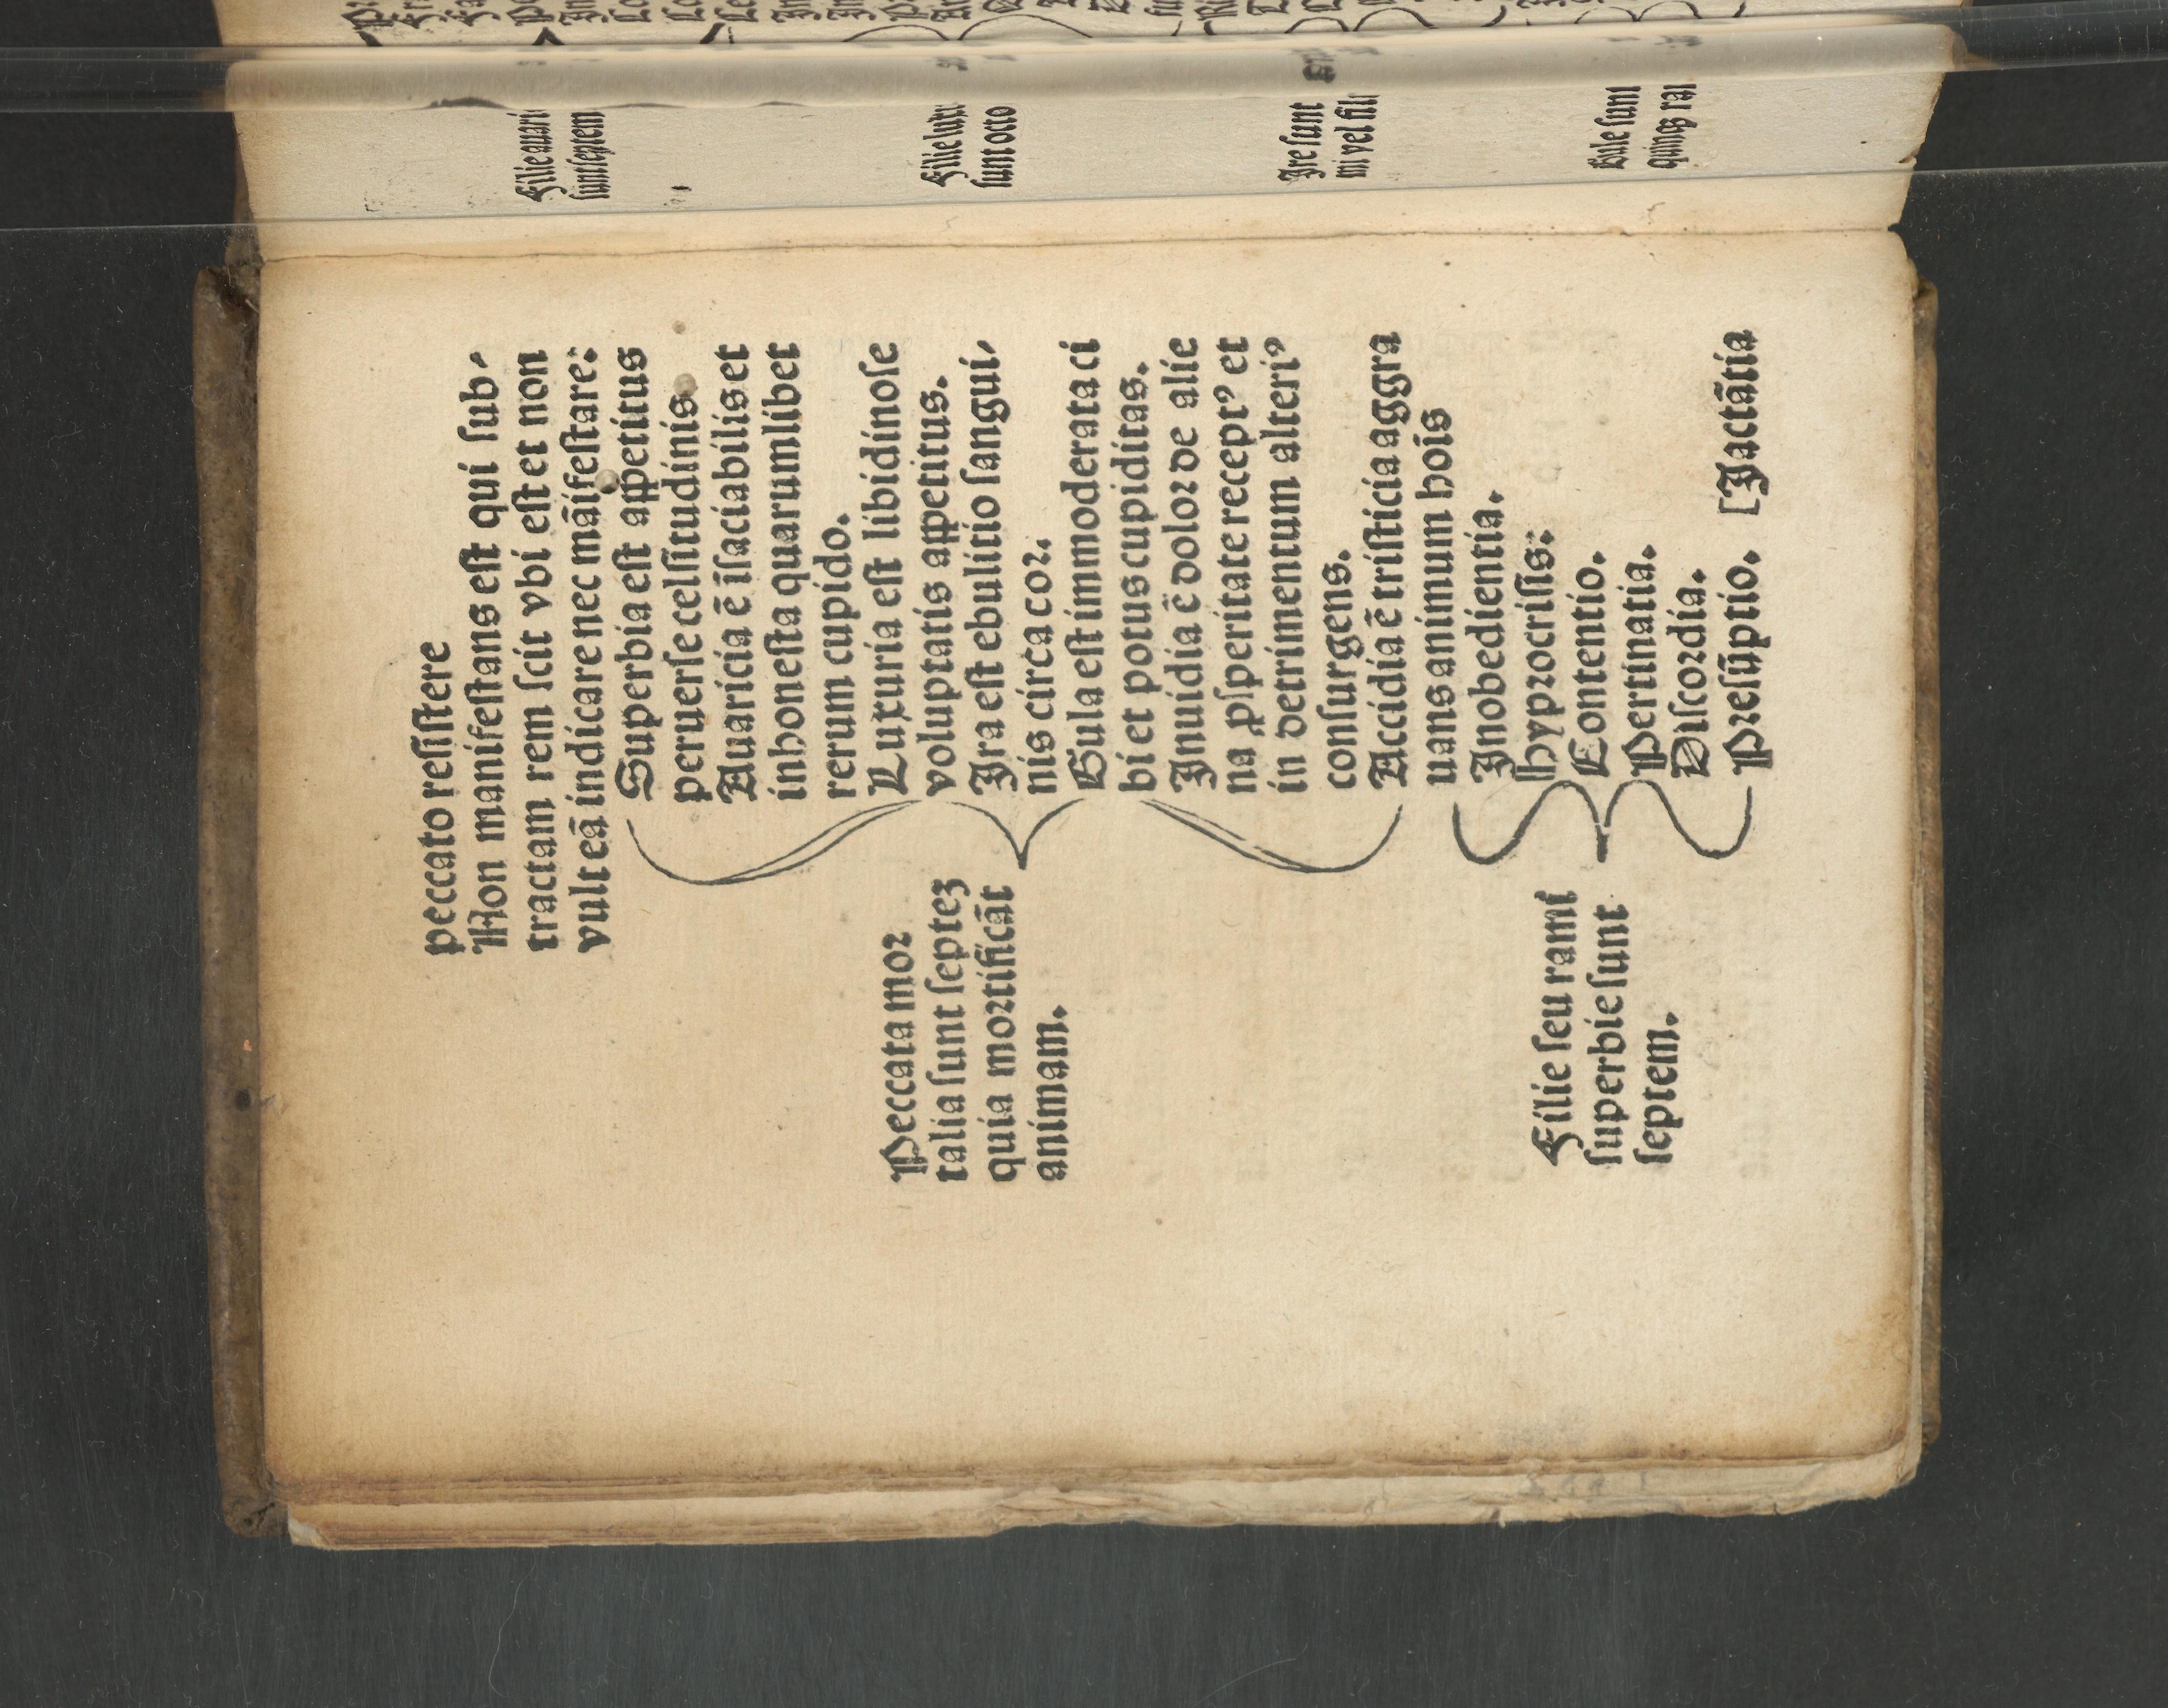 peccato resistere
Non manifestans est qui sub⸗
tractam rem scit vbi est et non
vult eā indicare nec māifestare:
Peccata mor
talia sunt septez
quia mortificāt
animam.
Superbia est appetitus
peruerse celsitudinis.
Auaricia ē īsaciabilis et
inhonesta quarumlibet
rerum cupido.
Luxuria est libidinose
voluptatis appetitus.
Ira est ebulitio sangui⸗
nis circa cor.
Gula est immoderata ci
bi et potus cupiditas.
Inuidia ē dolor de alie
na ꝓsperitate receptꝰ et
in detrimentum alteriꝰ
consurgens.
Accidia ē tristicia aggra
uans animum hoīs
Filie seu rami
superbie sunt
septem.
Inobedientia.
Hypocrisis:
Contentio.
Pertinatia.
Discordia.
Presūptio. [Iactātia
Filie auari
sunt septem
Filie luxu
sunt octo
Ire sunt
ni vel fili
Gule sunt
quinqꝫ ra